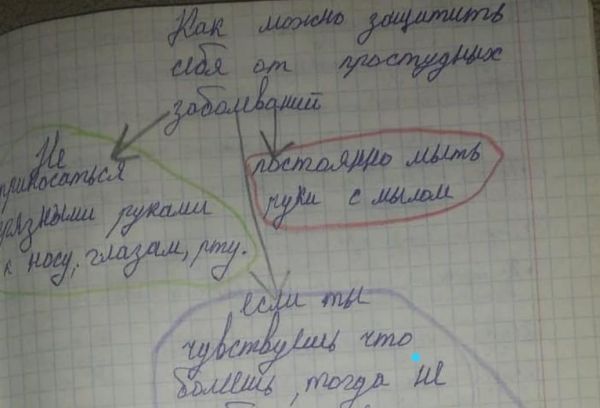 Как можно защитить
себя от простудных
заболеваний
Не
прикосаться
грязными руками
к носу, глазам, рту.
постоянно мыть
руки с мылом
если ты
чувствуешь что
болеешь, тогда не